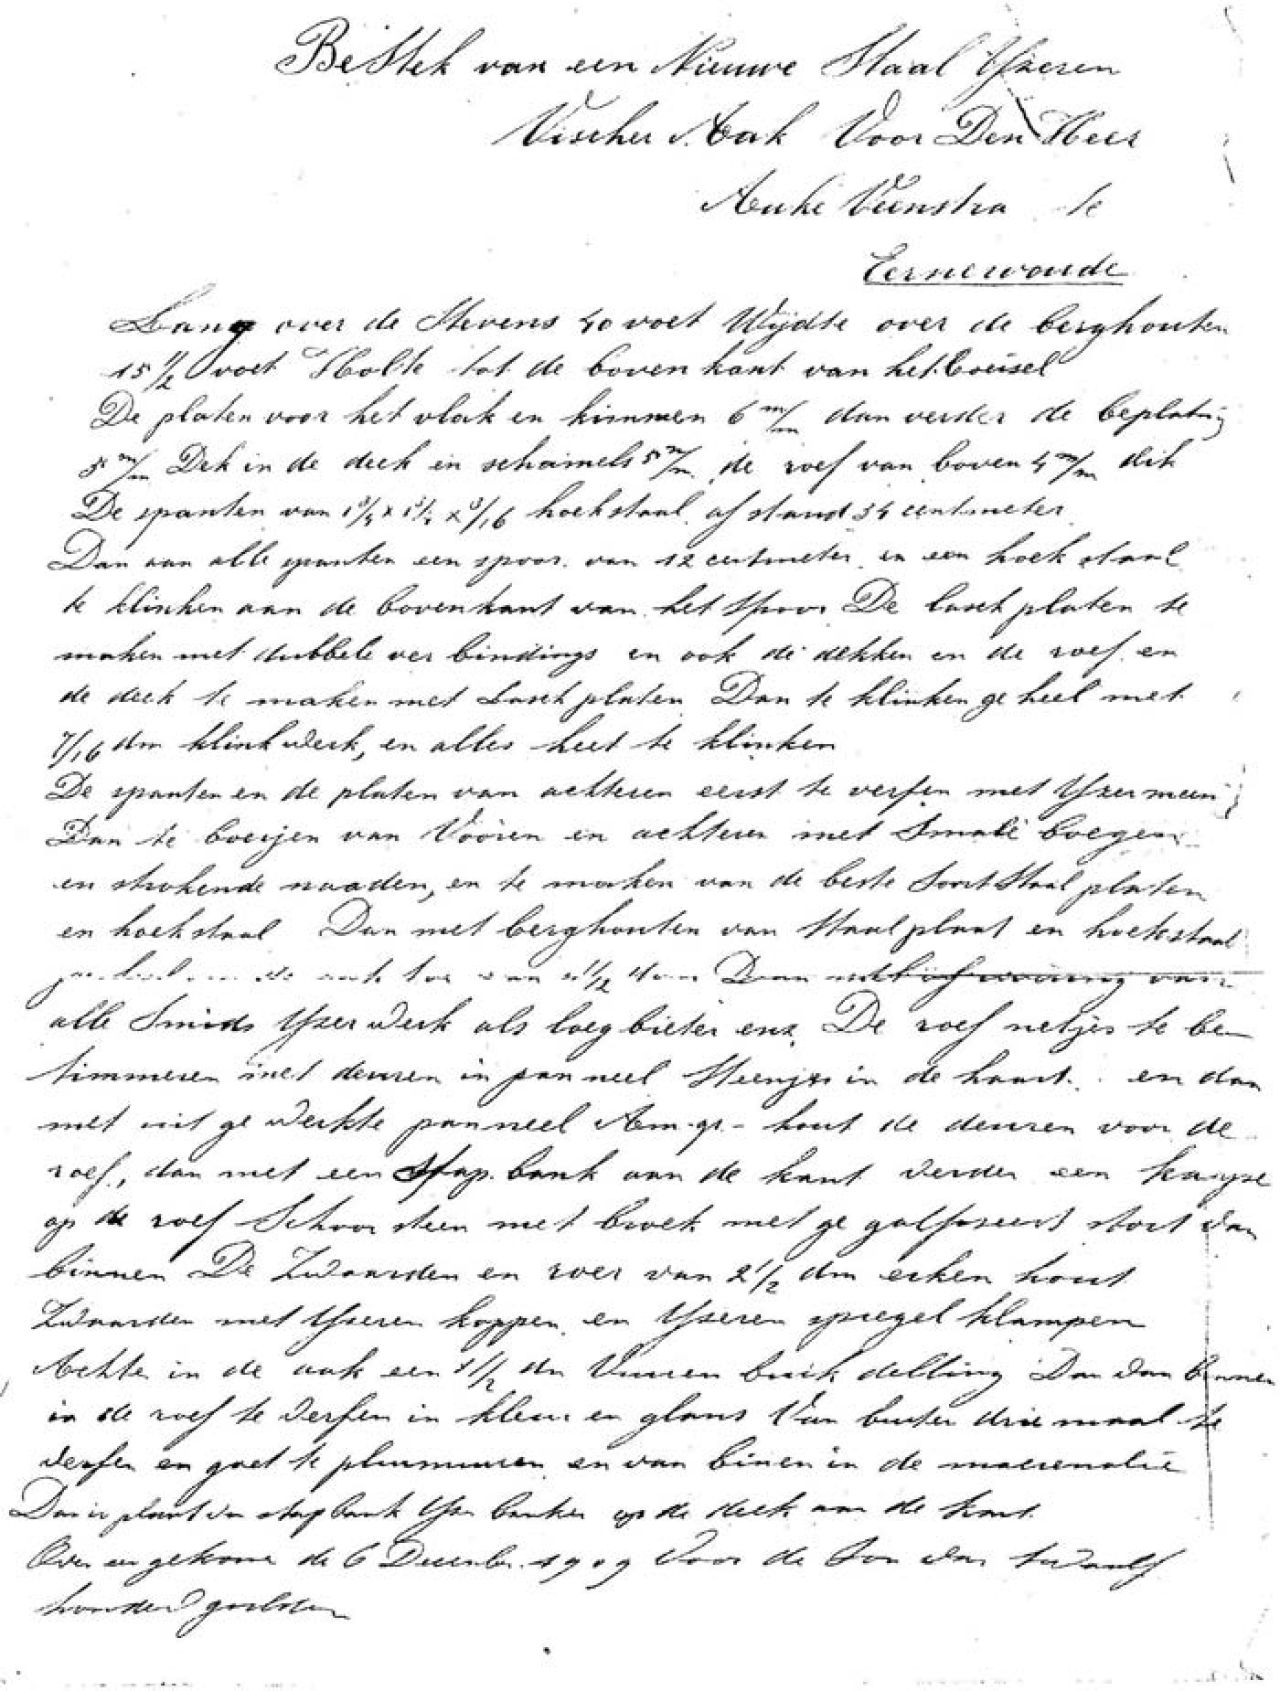 BeStek van een Nieuwe Staal Yzeren
Visscher Aak Voor Den Heer
Auke Veenstra te
Eernewoude
Lang over de Stevens 40 voet Wijdte over de berghouten
15 1/2 voet Holte tot de bovenkant van het boeisel
De platen voor het vlak en kimmen 6 m/m dan verder de beplating
5 m/m Dek in de deck en schamels 5 m/m de roef van boven 4 m/m dik
De spanten van 1 3/4 x 1 3/4 x 3/16 hoekstaal afstand 34 centimeter
Dan aan alle spanten een spoor van 12 centimeter en een hoek staal
te klinken aan de bovenkant van het spoor De lasch platen te
maken met dubbele ver bindings en ook de dekken en de roef en
de deck te maken met Lasch platen Dan te klinken ge heel met
7/16 dm klinkwerk, en alles heet te klinken
De spanten en de platen van achteren eerst te verfen met Yzer meenij
Dan te boeijen van Vooren en achteren met Smalle boegen
en strokende naaden, en te maken van de beste Soort Staal platen
en hoekstaal Dan met berghouten van Staal plaat en hoekstaal
1/2 Dan
alle Smids Yzer werk als loeg bieter enz. De roef netjes te be
timmeren met deuren in panneel Steentjes in de haart en dan
met uit ge werkte panneel Am-gr- hout de deuren voor de
roef, dan met een Stap bank aan de kant verder een kapje
op de roef Schoor steen met broek met ge galfiseert stort van
binnen De Zwaarden en roer van 2 1/2 dm eiken hout
Zwaarden met Yzeren koppen en Yzeren spiegel klampen
Achter in de aak een 1 1/2 dm Vuren buik delling Dan van binnen
in de roef te verfen in kleur en glans Van buiten drie maal te
verfen en goet te plumuuren en van binen in de
Dan in plaat van stap bank Yzer banken op de deck aan de kant
Over een gekome de 6 December 1909 Voor de Som van twaalf
honderd gulden